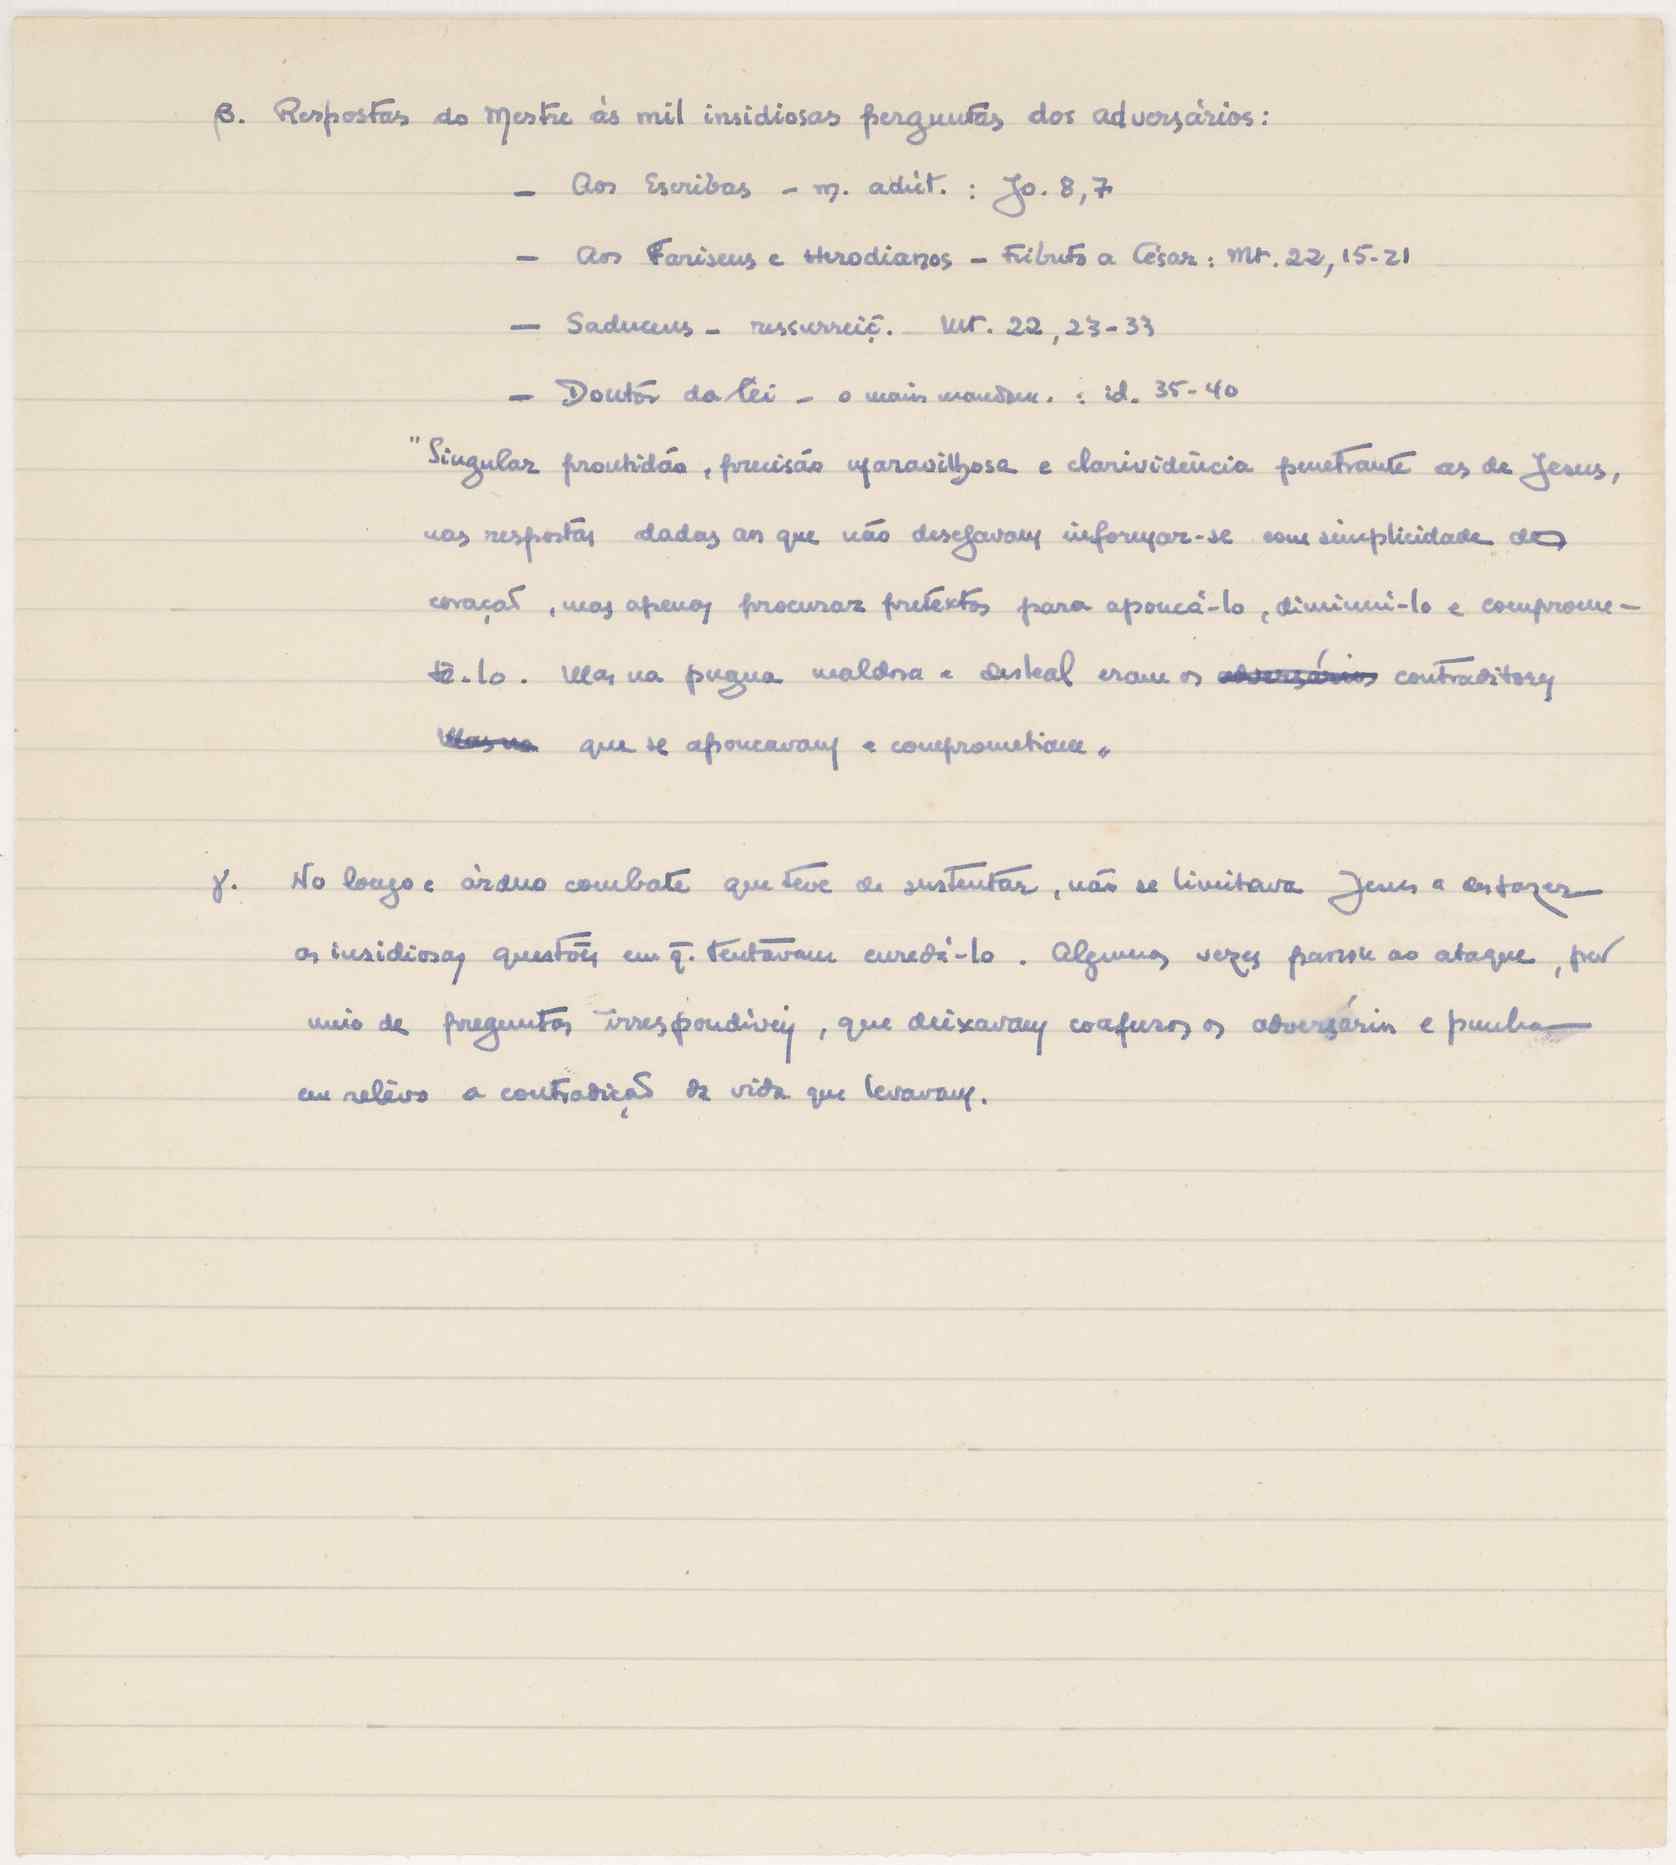 β. Respostas do Mestre às mil insidiosas perguntas dos adversários:
— Aos Escribas - m. adúlt. : Jo. 8,7
— Aos Fariseus e Herodianos - tributo a César : Mt. 22, 15-21
— Saduceus - ressurreiç. Mt. 22, 23-33
— Doutor da lei - o maior mandam. : id. 35-40
"Singular prontidão, precisão maravilhosa e clarividência penetrante as de Jesus,
nas respostas dadas aos que não desejavam informar-se com simplicidade de
coração, mas apenas procurar pretextos para apoucá-lo, diminuí-lo e comprome-
tê-lo. Mas na pugna maldosa e desleal eram os adversários contraditores
Mas na que se apoucavam e comprometiam"
γ. No longo e árduo combate que teve de sustentar, não se limitava Jesus a desfazer
as insidiosas questões em q. tentavam enredá-lo. Algumas vezes passou ao ataque, por
meio de preguntas irrespondíveis, que deixavam confusos os adversários e punha
em relêvo a contradição da vida que levavam.